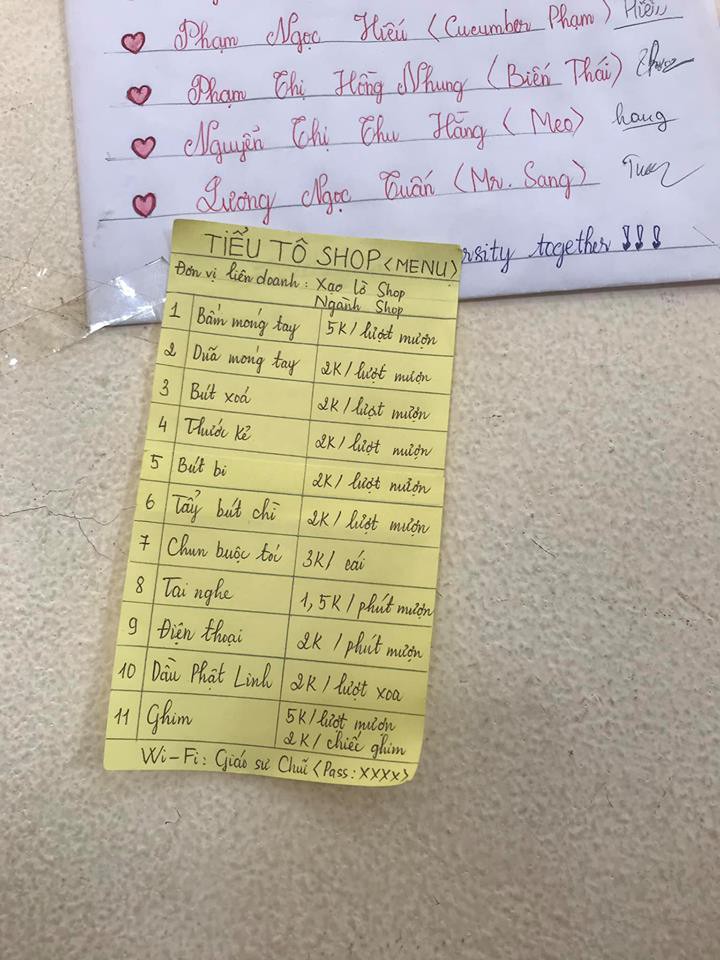 Phạm Ngọc Hiếu (Cucumber Phạm) Hiếu
Phạm Thị Hồng Nhung (Biến Thái)
Nguyễn Thị Thu Hằng (Meo) hang
Lương Ngọc Tuấn (Mr. Sang)
rsity together !!!
TIỂU TÔ SHOP <MENU>
Đơn vị liên doanh : Xạo Lồ Shop
Ngành Shop
1 Bấm móng tay 5K / lượt mượn
2 Dũa móng tay 2K / lượt mượn
3 Bút xoá 2K / lượt mượn
4 Thước kẻ 2K / lượt mượn
5 Bút bi 2K / lượt mượn
6 Tẩy bút chì 2K / lượt mượn
7 Chun buộc tóc 3K / cái
8 Tai nghe 1,5K / phút mượn
9 Điện thoại 2K / phút mượn
10 Dầu Phật Linh 2K / lượt xoa
11 Ghim 5K / lượt mượn
2K / chiếc ghim
Wi-Fi : Giáo sư Chuĩ <Pass : XXXX>